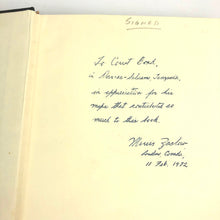 SIGNED
To Court Bond,
in
in appreciation for his
maps that contributed so
much to this book.
Morris Zaslow
London Canada,
11 Feb. 1972